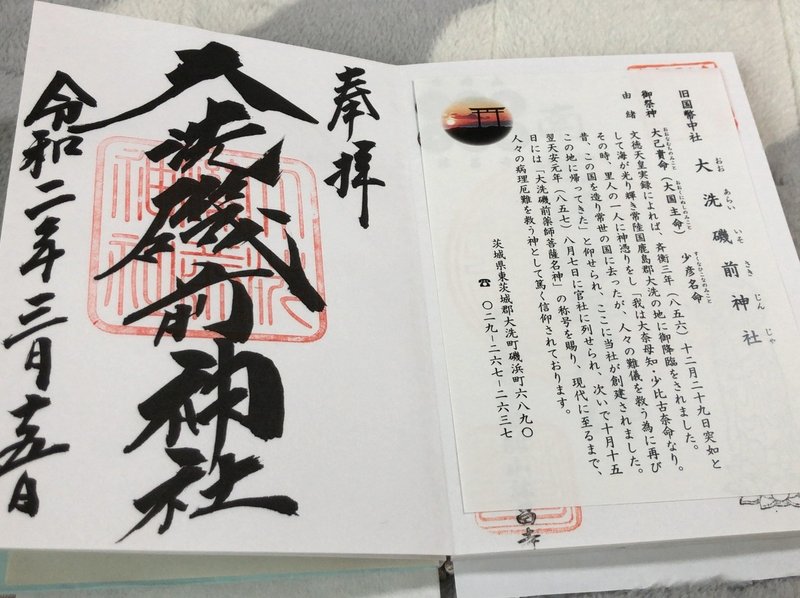 旧国幣中社　大洗磯前神社
おお あらい いそ さき じん じゃ
御祭神　大己貴命（大国主命）　少彦名命
おおなむちのみこと　おおくにぬしのみこと　すくなひこなのみこと
由緒　文徳天皇実録によれば、斉衡三年（八五六）十二月二十九日突如と
して海が光り輝き常陸国鹿島郡大洗の地に御降臨をされました。
その時、里人の一人に神憑りをし「我は大奈母知・少比古奈命なり。
昔、この国を造り常世の国に去ったが、人々の難儀を救う為に再び
この地に帰ってきた」と仰せられ、ここに当社が創建されました。
翌天安元年（八五七）八月七日に官社に列せられ、次いで十月十五
日には「大洗磯前薬師菩薩名神」の称号を賜り、現代に至るまで、
人々の病理厄難を救う神として篤く信仰されております。
茨城県東茨城郡大洗町磯浜町六八九〇
☎ 〇二九－二六七－二六三七
奉拝
大洗磯前神社
令和二年三月十五日